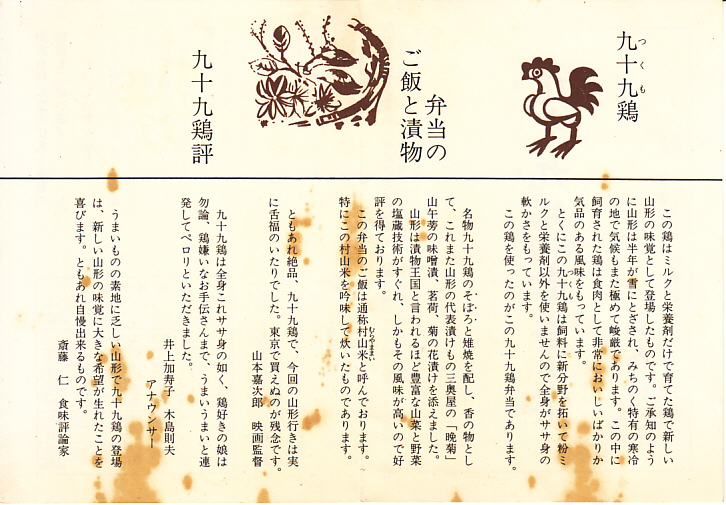 九十九鶏
つくも
この鶏はミルクと栄養剤だけで育てた鶏で新しい
山形の味覚として登場したものです。ご承知のよう
に山形は半年が雪にとざされ、みちのく特有の寒冷
の地で気候もまた極めて峻厳であります。この中に
飼育された鶏は食肉として非常においしいばかりか
気品のある風味をもっています。
とくにこの九十九鶏は飼料に新分野を拓いて粉ミ
つくも
ルクと栄養剤以外を使いませんので全身がササ身の
軟かさをもっています。
この鶏を使ったのがこの九十九鶏弁当であります。
弁当の
ご飯と漬物
名物九十九鶏のそぼろと雉焼を配し、香の物とし
て、これまた山形の代表漬けもの三奥屋の「晩菊」
山午蒡の味噌漬、茗荷、菊の花漬けを添えました。
山形は漬物王国と言われるほど豊富な山菜と野菜
の塩蔵技術がすぐれ、しかもその風味が高いので好
評を得ております。
この弁当のご飯は通称村山米と呼んでおります。
むらやままい
特にこの村山米を吟味して炊いたものであります。
九十九鶏評
ともあれ絶品、九十九鶏で、今回の山形行きは実
に舌福のいたりでした。東京で買えぬのが残念です。
山本嘉次郎 映画監督
九十九鶏は全身これササ身の如く、鶏好きの娘は
勿論、鶏嫌いなお手伝さんまで、うまいうまいと連
発してペロリといただきました。
井上加寿子 木島則夫
アナウンサー
うまいものの素地に乏しい山形で九十九鶏の登場
は、新しい山形の味覚に大きな希望が生れたことを
喜びます。ともあれ自慢出来るものです。
斎藤 仁 食味評論家